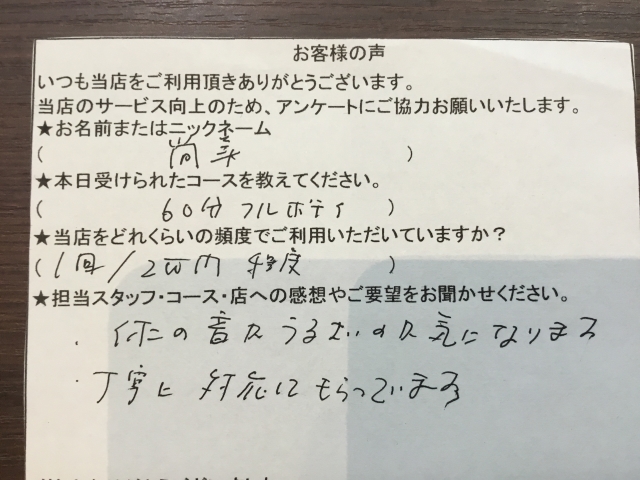 お客様の声
いつも当店をご利用頂きありがとうございます。
当店のサービス向上のため、アンケートにご協力お願いいたします。
★お名前またはニックネーム
( )
★本日受けられたコースを教えてください。
( 60分 フルボディ )
★当店をどれくらいの頻度でご利用いただいていますか？
(1回/2W内 程度 )
★担当スタッフ・コース・店への感想やご要望をお聞かせください。
・ の音がうるさいのが気になります
・丁寧に対応してもらっています